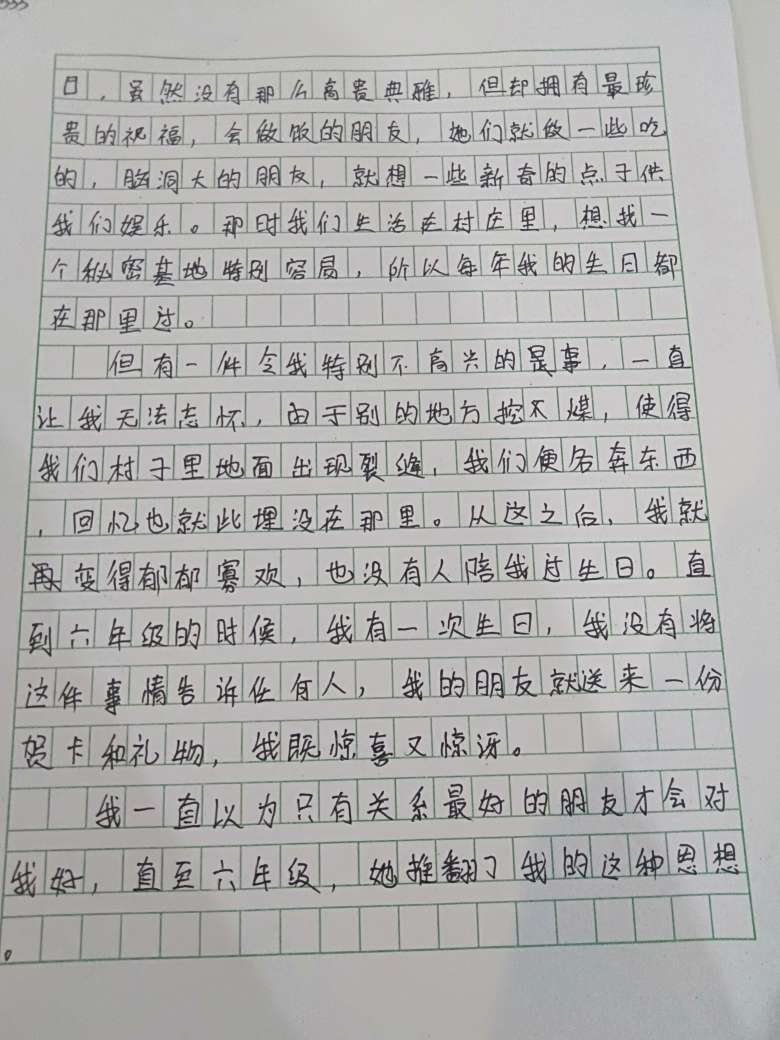 日，虽然没有那么高贵典雅，但却拥有最珍
贵的祝福，会做饭的朋友，她们就做一些吃
的，脑洞大的朋友，就想一些新奇的点子供
我们娱乐。那时我们生活在村庄里，想找一
个秘密基地特别容易，所以每年我的生日都
在那里过。
但有一件令我特别不高兴的是事，一直
让我无法忘怀，由于别的地方挖不煤，使得
我们村子里地面出现裂缝，我们便各奔东西
，回忆也就此埋没在那里。从这之后，我就
再变得郁郁寡欢，也没有人陪我过生日。直
到六年级的时候，我有一次生日，我没有将
这件事情告诉任何人，我的朋友就送来一份
贺卡和礼物，我既惊喜又惊讶。
我一直以为只有关系最好的朋友才会对
我好，直至六年级，她推翻了我的这种思想
。